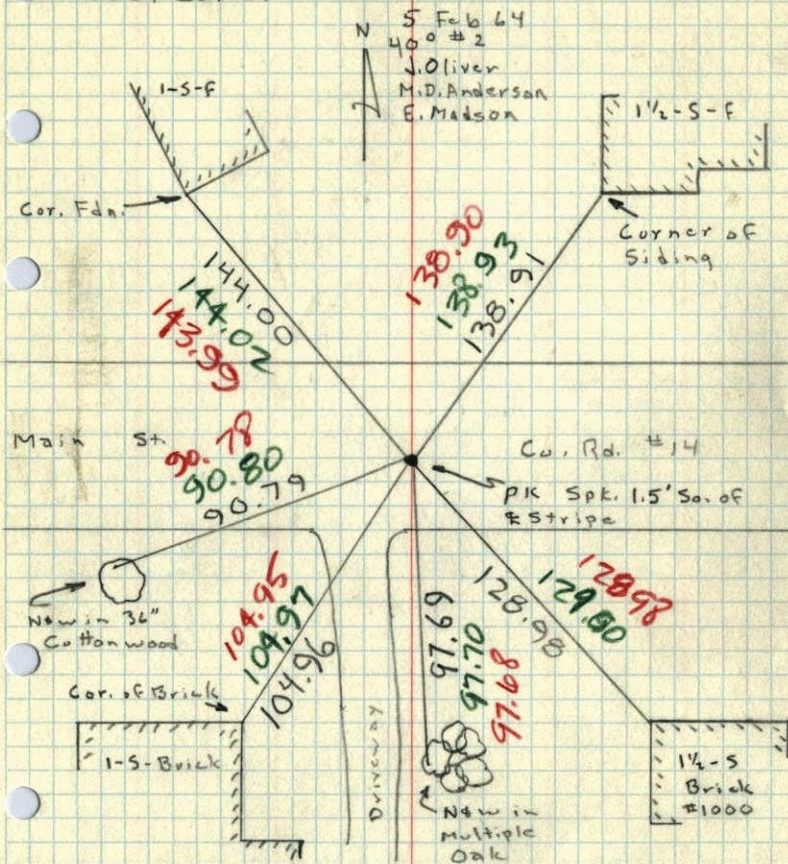 5 Feb 64
N
40° #2
J. Oliver
M.D. Anderson
E. Madson
1-S-F
1½-S-F
Cor. Fdn.
Corner of
Siding
144.00
144.02
143.99
138.90
138.93
138.91
Main St.
Co. Rd. #14
90.78
90.80
90.79
PK Spk. 1.5' So. of
℄ Stripe
N&W in 36"
Cottonwood
104.95
104.97
104.96
97.69
97.70
97.68
128.98
129.00
128.98
Cor. of Brick
1-S-Brick
Driveway
N&W in
Multiple
Oak
1½-S
Brick
#1000